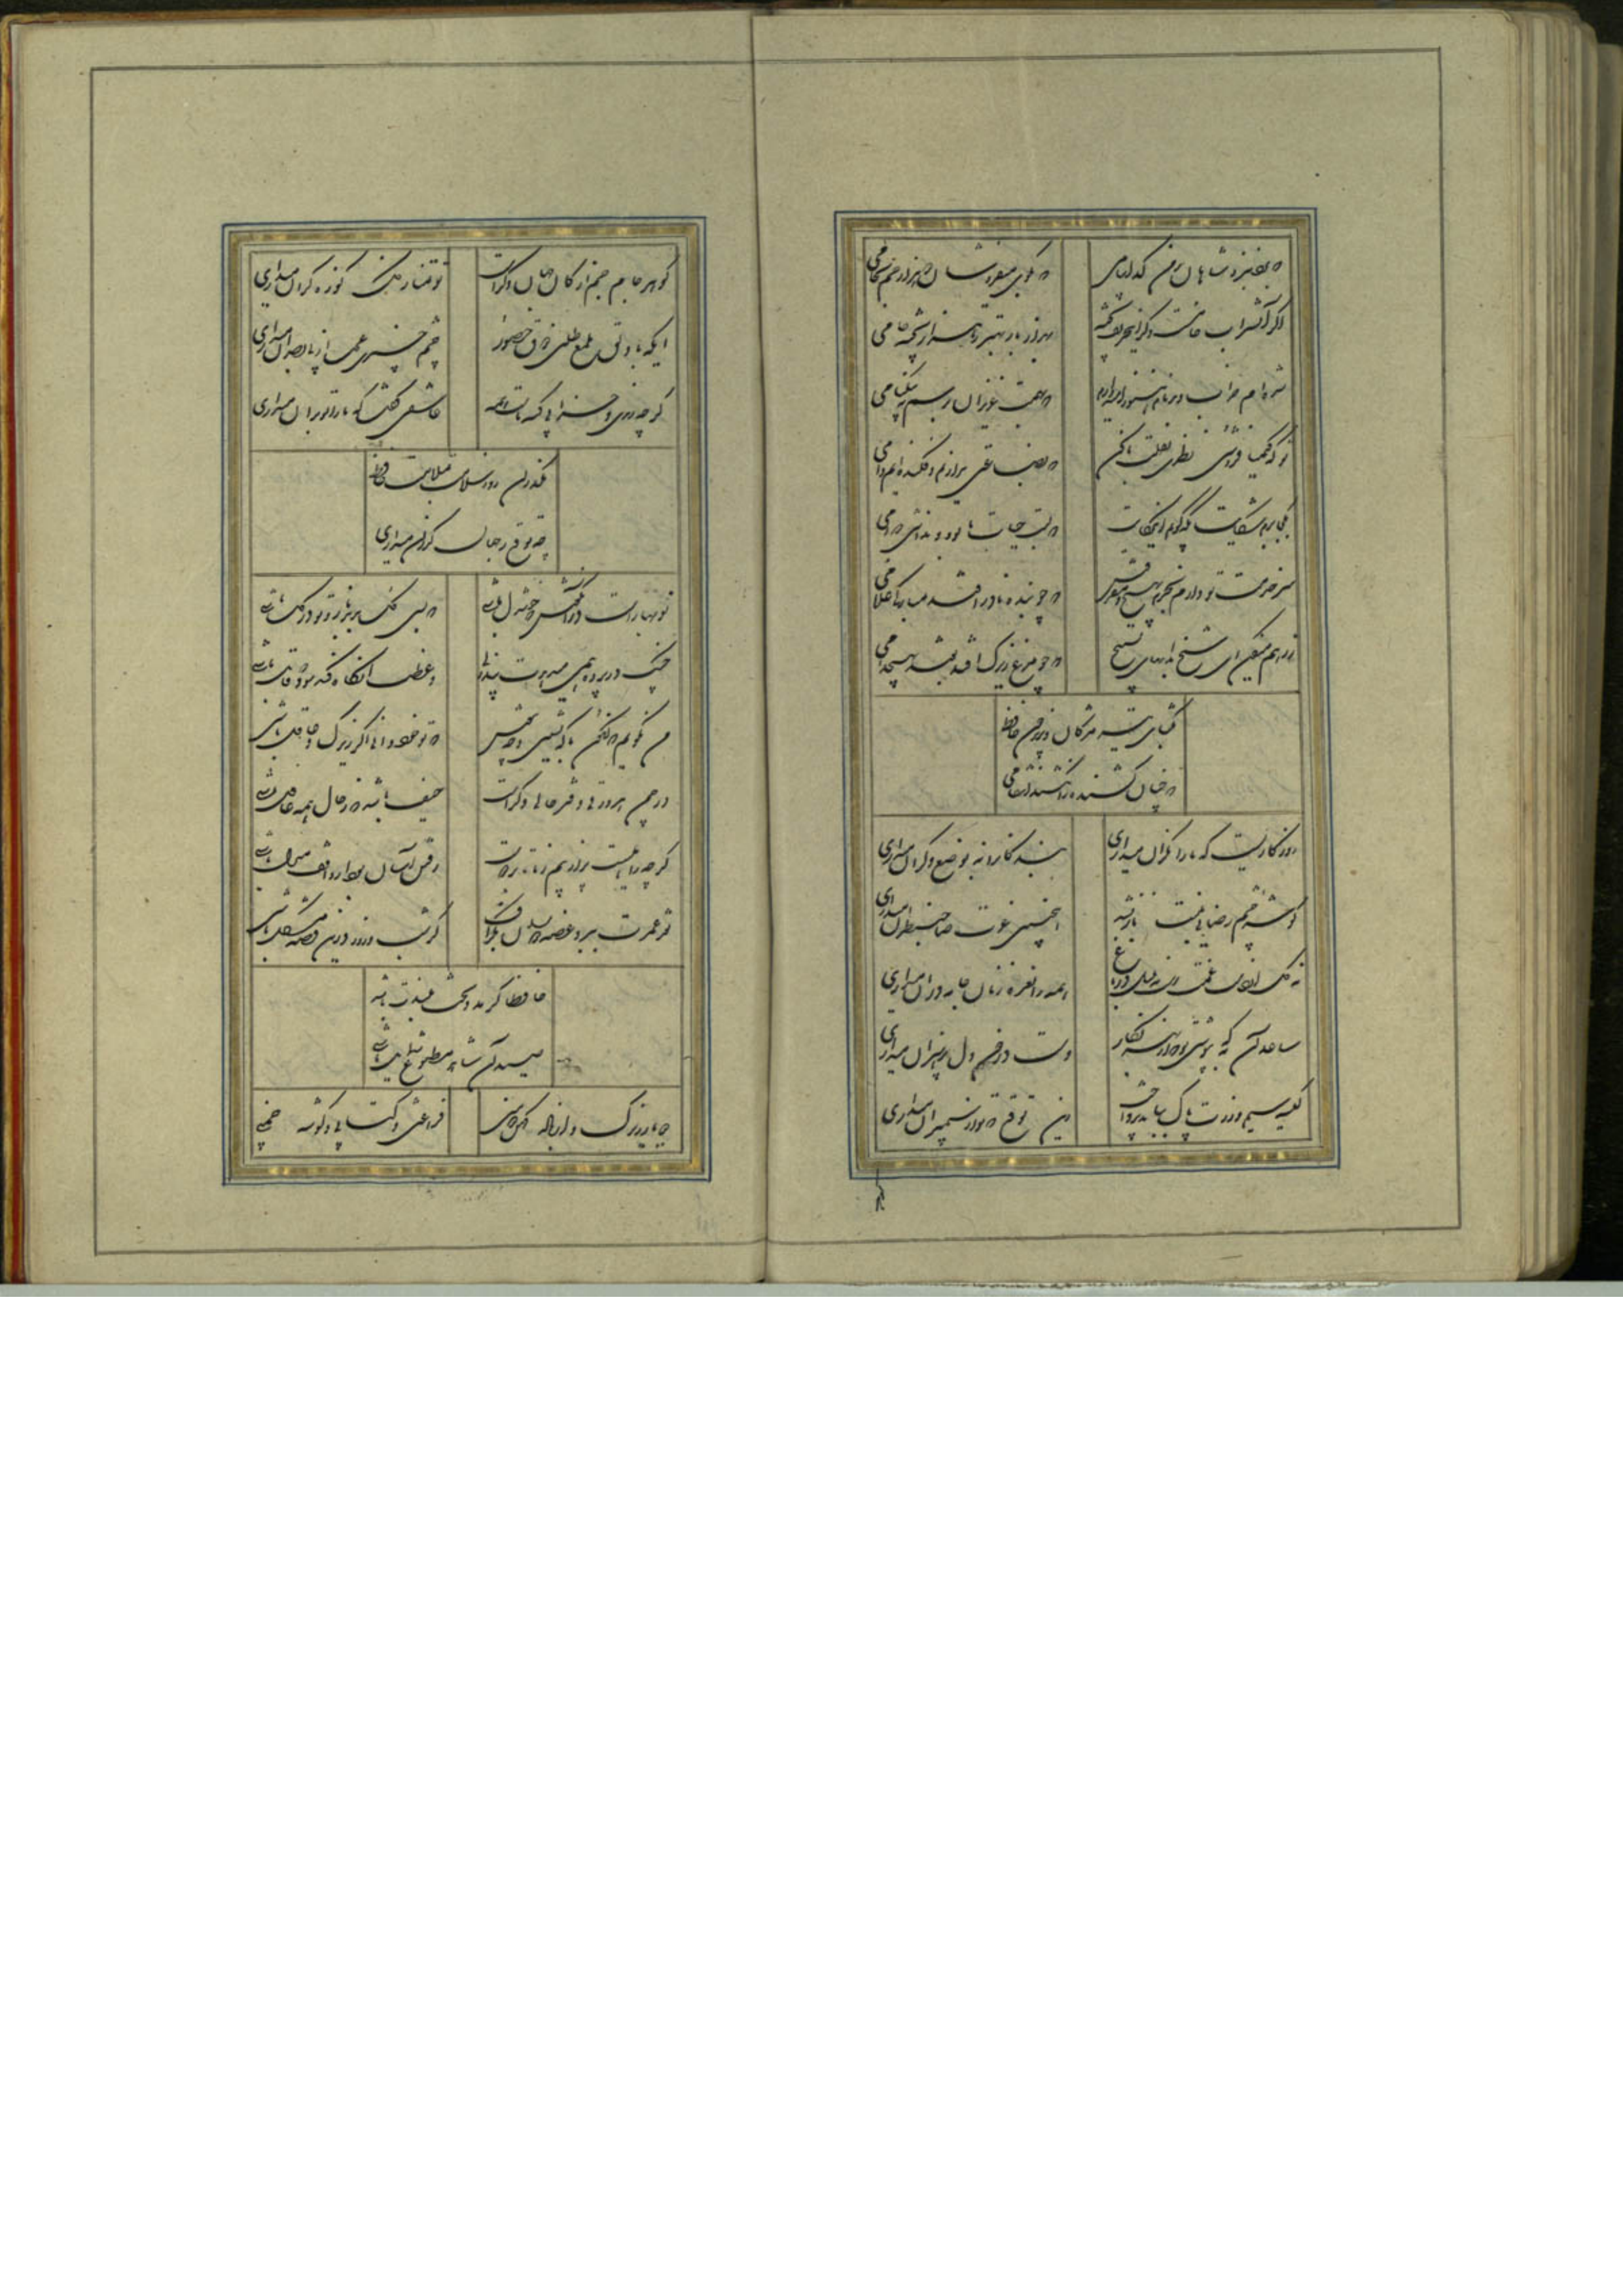 که برد بنزد شاهان ز من گدا پیامی که بکوی میفروشان دو هزار جم بجامی
اگر آن شراب خامست و گر این حریف پخته بهزار بار بهتر ز هزار پخته خامی
شده‌ام خراب و بدنام و هنوز امیدوارم که بهمت عزیزان برسم به نیکنامی
تو که کیمیا فروشی نظری بقلب ما کن که بضاعتی نداریم و فکنده‌ایم دامی
بکجا برم شکایت بکه گویم این حکایت که لبت حیات ما بود و نداشتی دوامی
سر خدمت تو دارم بخرم بهیچ و مفروش که چو بنده کمتر افتد بمبارکی غلامی
ز رهم میفکن ای شیخ بدانهای تسبیح که چو مرغ زیرک افتد نفتد بهیچ دامی
بگشای تیر مژگان و بریز خون حافظ
که چنان کشنده را نکشد کس انتقامی
روزگاریست که ما را نگران میداری بندگان را نه بوضع دگران میداری
گوشه چشم رضایی بمنت باز نشد اینچنین عزت صاحبنظران میداری
نه گل از داغ غمت رست نه بلبل در باغ همه را نعره زنان جامه دران میداری
ساعد آن به که بپوشی تو چو از بهر نگار دست در خون دل پر هنران میداری
کیسه سیم و زرت پاک بباید پرداخت این توقع که تو از سیمبران میداری
گوهر جام جم از کان جهان دگرست تو تمنا ز گل کوزه گران میداری
ایکه با دلق ملمع طلبی ذوق حضور چشم خیری عجب از بیبصران میداری
گر چه رندی و خرابی گنه ماست همه عاشقی گفت که ما را تو بران میداری
مگذران روز سلامت بملامت حافظ
چه توقع ز جهان گذران میداری
نوبهارست در آن کوش که خوشدل باشی که بسی گل بدمد باز و تو در گل باشی
چنگ در پرده همی میدهدت پند ولی وعظت آنگاه کند سود که قابل باشی
من نگویم که کنون با که نشین و چه بنوش که تو خود دانی اگر زیرک و عاقل باشی
در چمن هر ورقی دفتر حالی دگرست حیف باشد که ز حال همه غافل باشی
گر چه راهیست پر از بیم ز ما تا بر دوست رفتن آسان بود ار واقف منزل باشی
نقد عمرت ببرد غصه دنیا بگزاف گر شب و روز درین قصه مشکل باشی
حافظا گر مدد بخت بلندت باشد
صید آن شاهد مطبوع شمایل باشی
دو یار زیرک و از باده کهن دو منی فراغتی و کتابی و گوشه چمنی